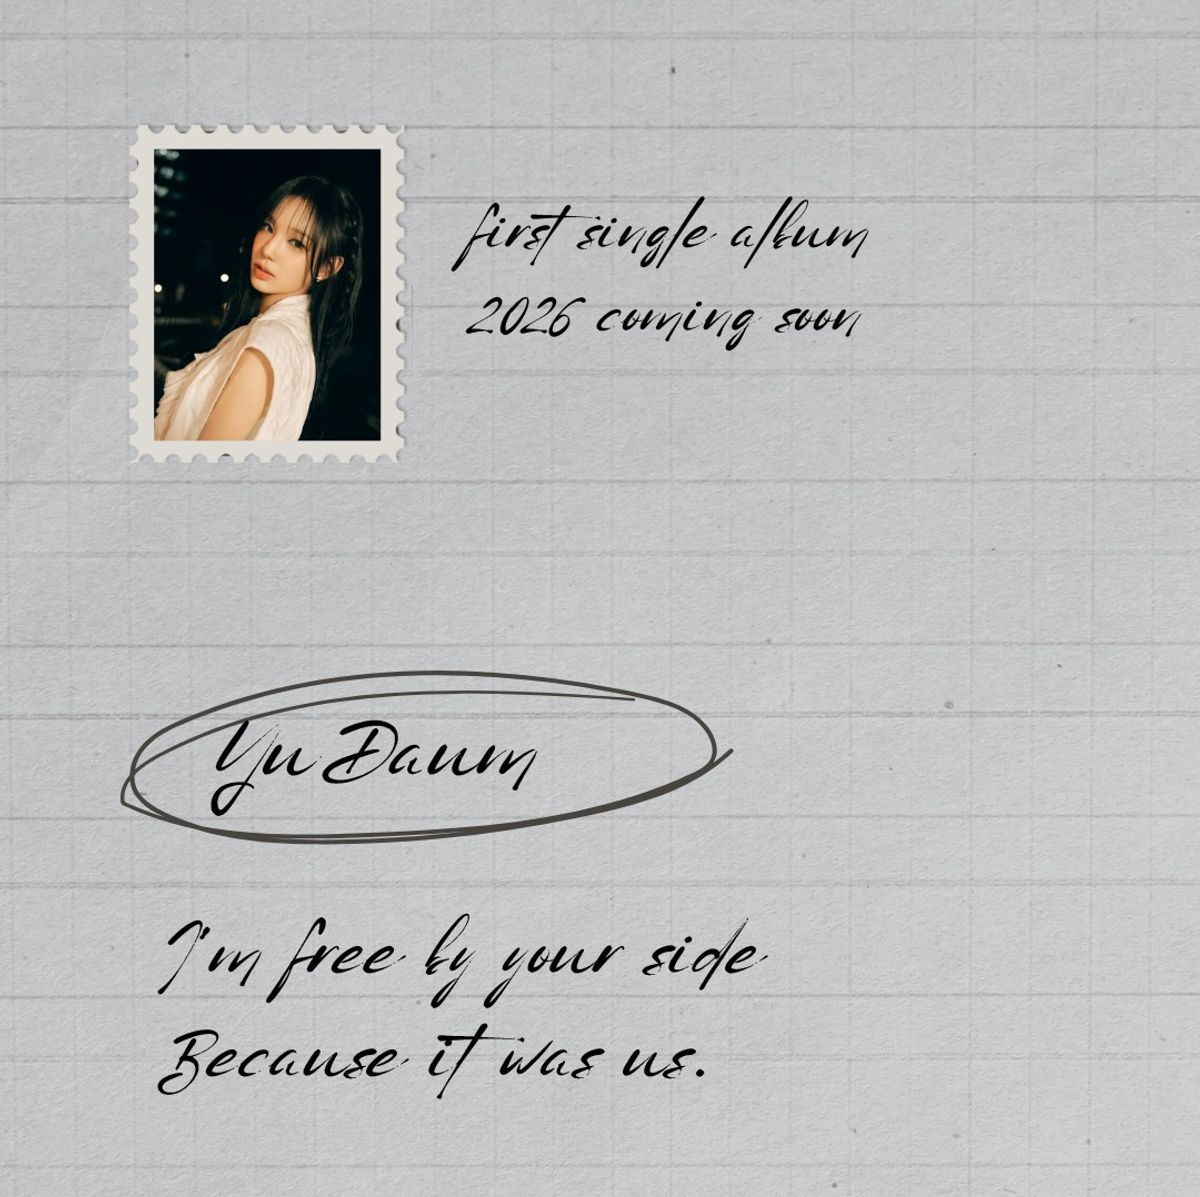 first single album
2026 coming soon
Yu Daum
I'm free by your side
Because it was us.